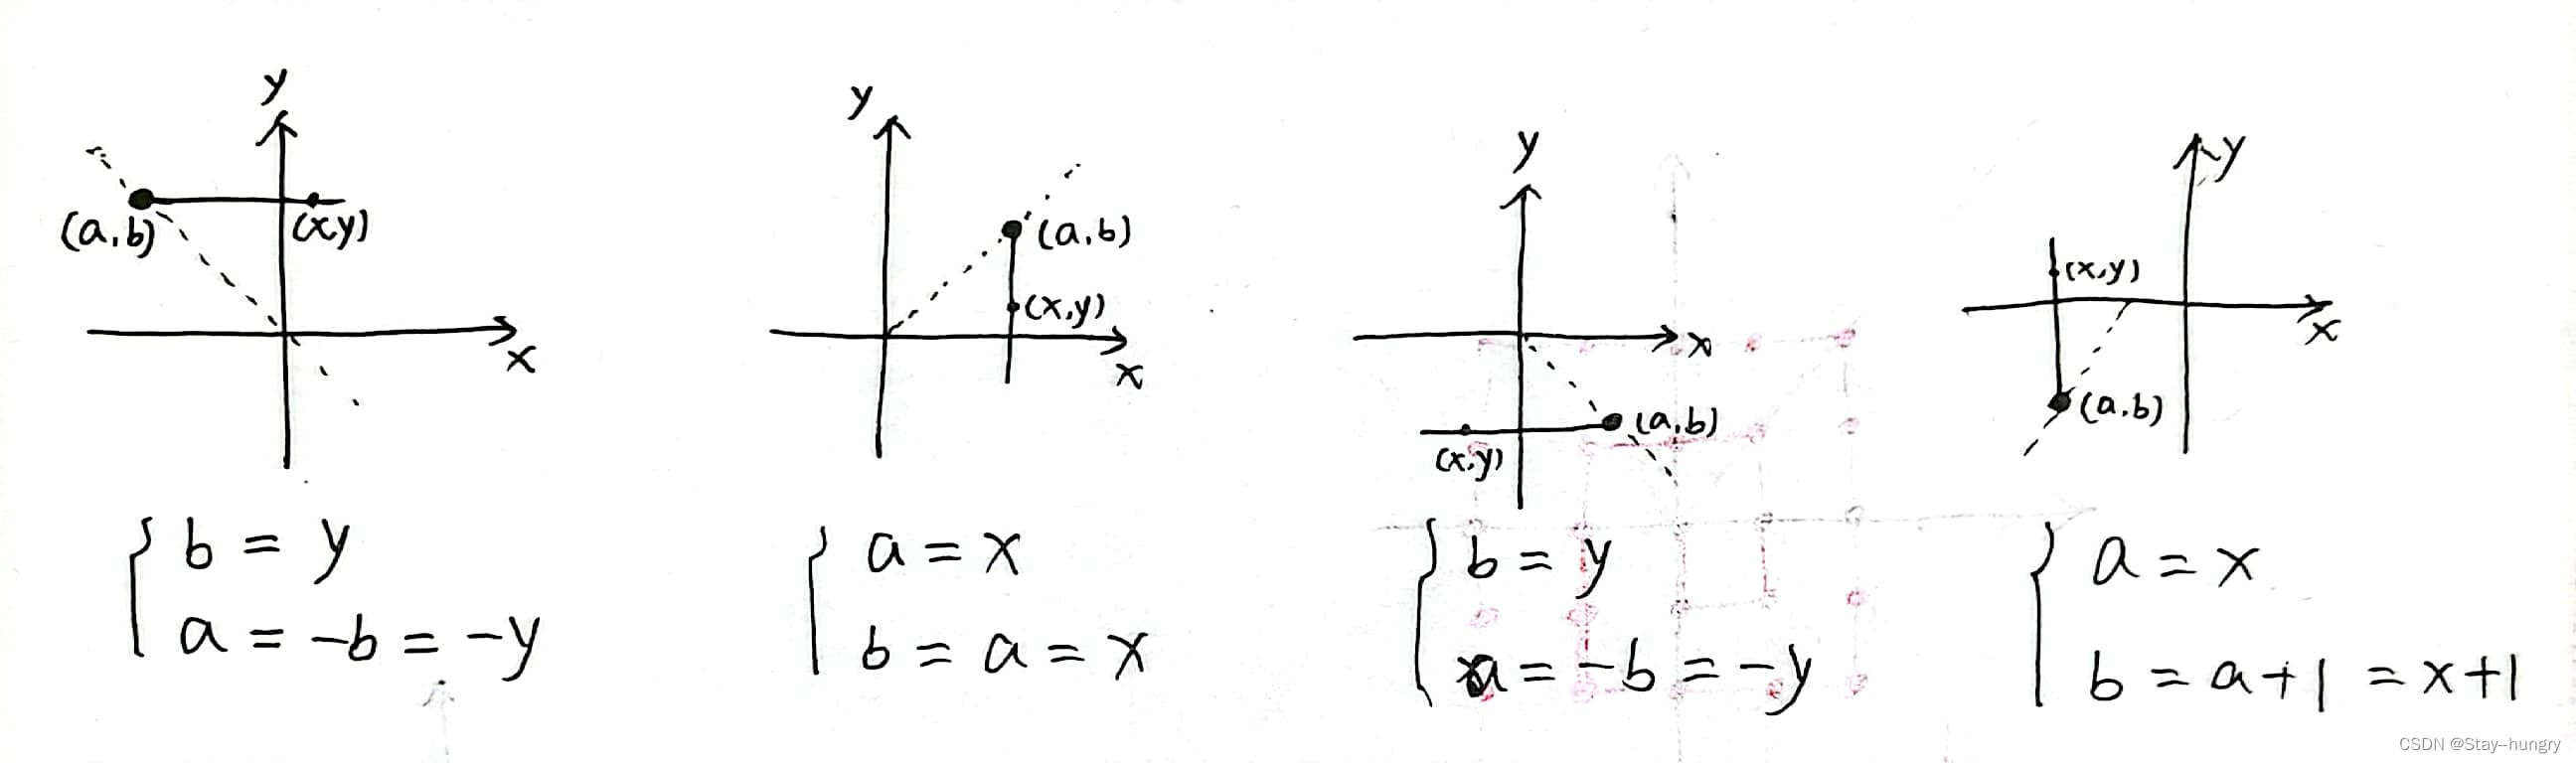 y
(a,b)
(x,y)
x
b = y
a = -b = -y
y
(a,b)
(x,y)
x
a = x
b = a = x
y
x
(a,b)
(x,y)
b = y
a = -b = -y
y
(x,y)
x
(a,b)
a = x
b = a+1 = x+1
CSDN @Stay--hungry